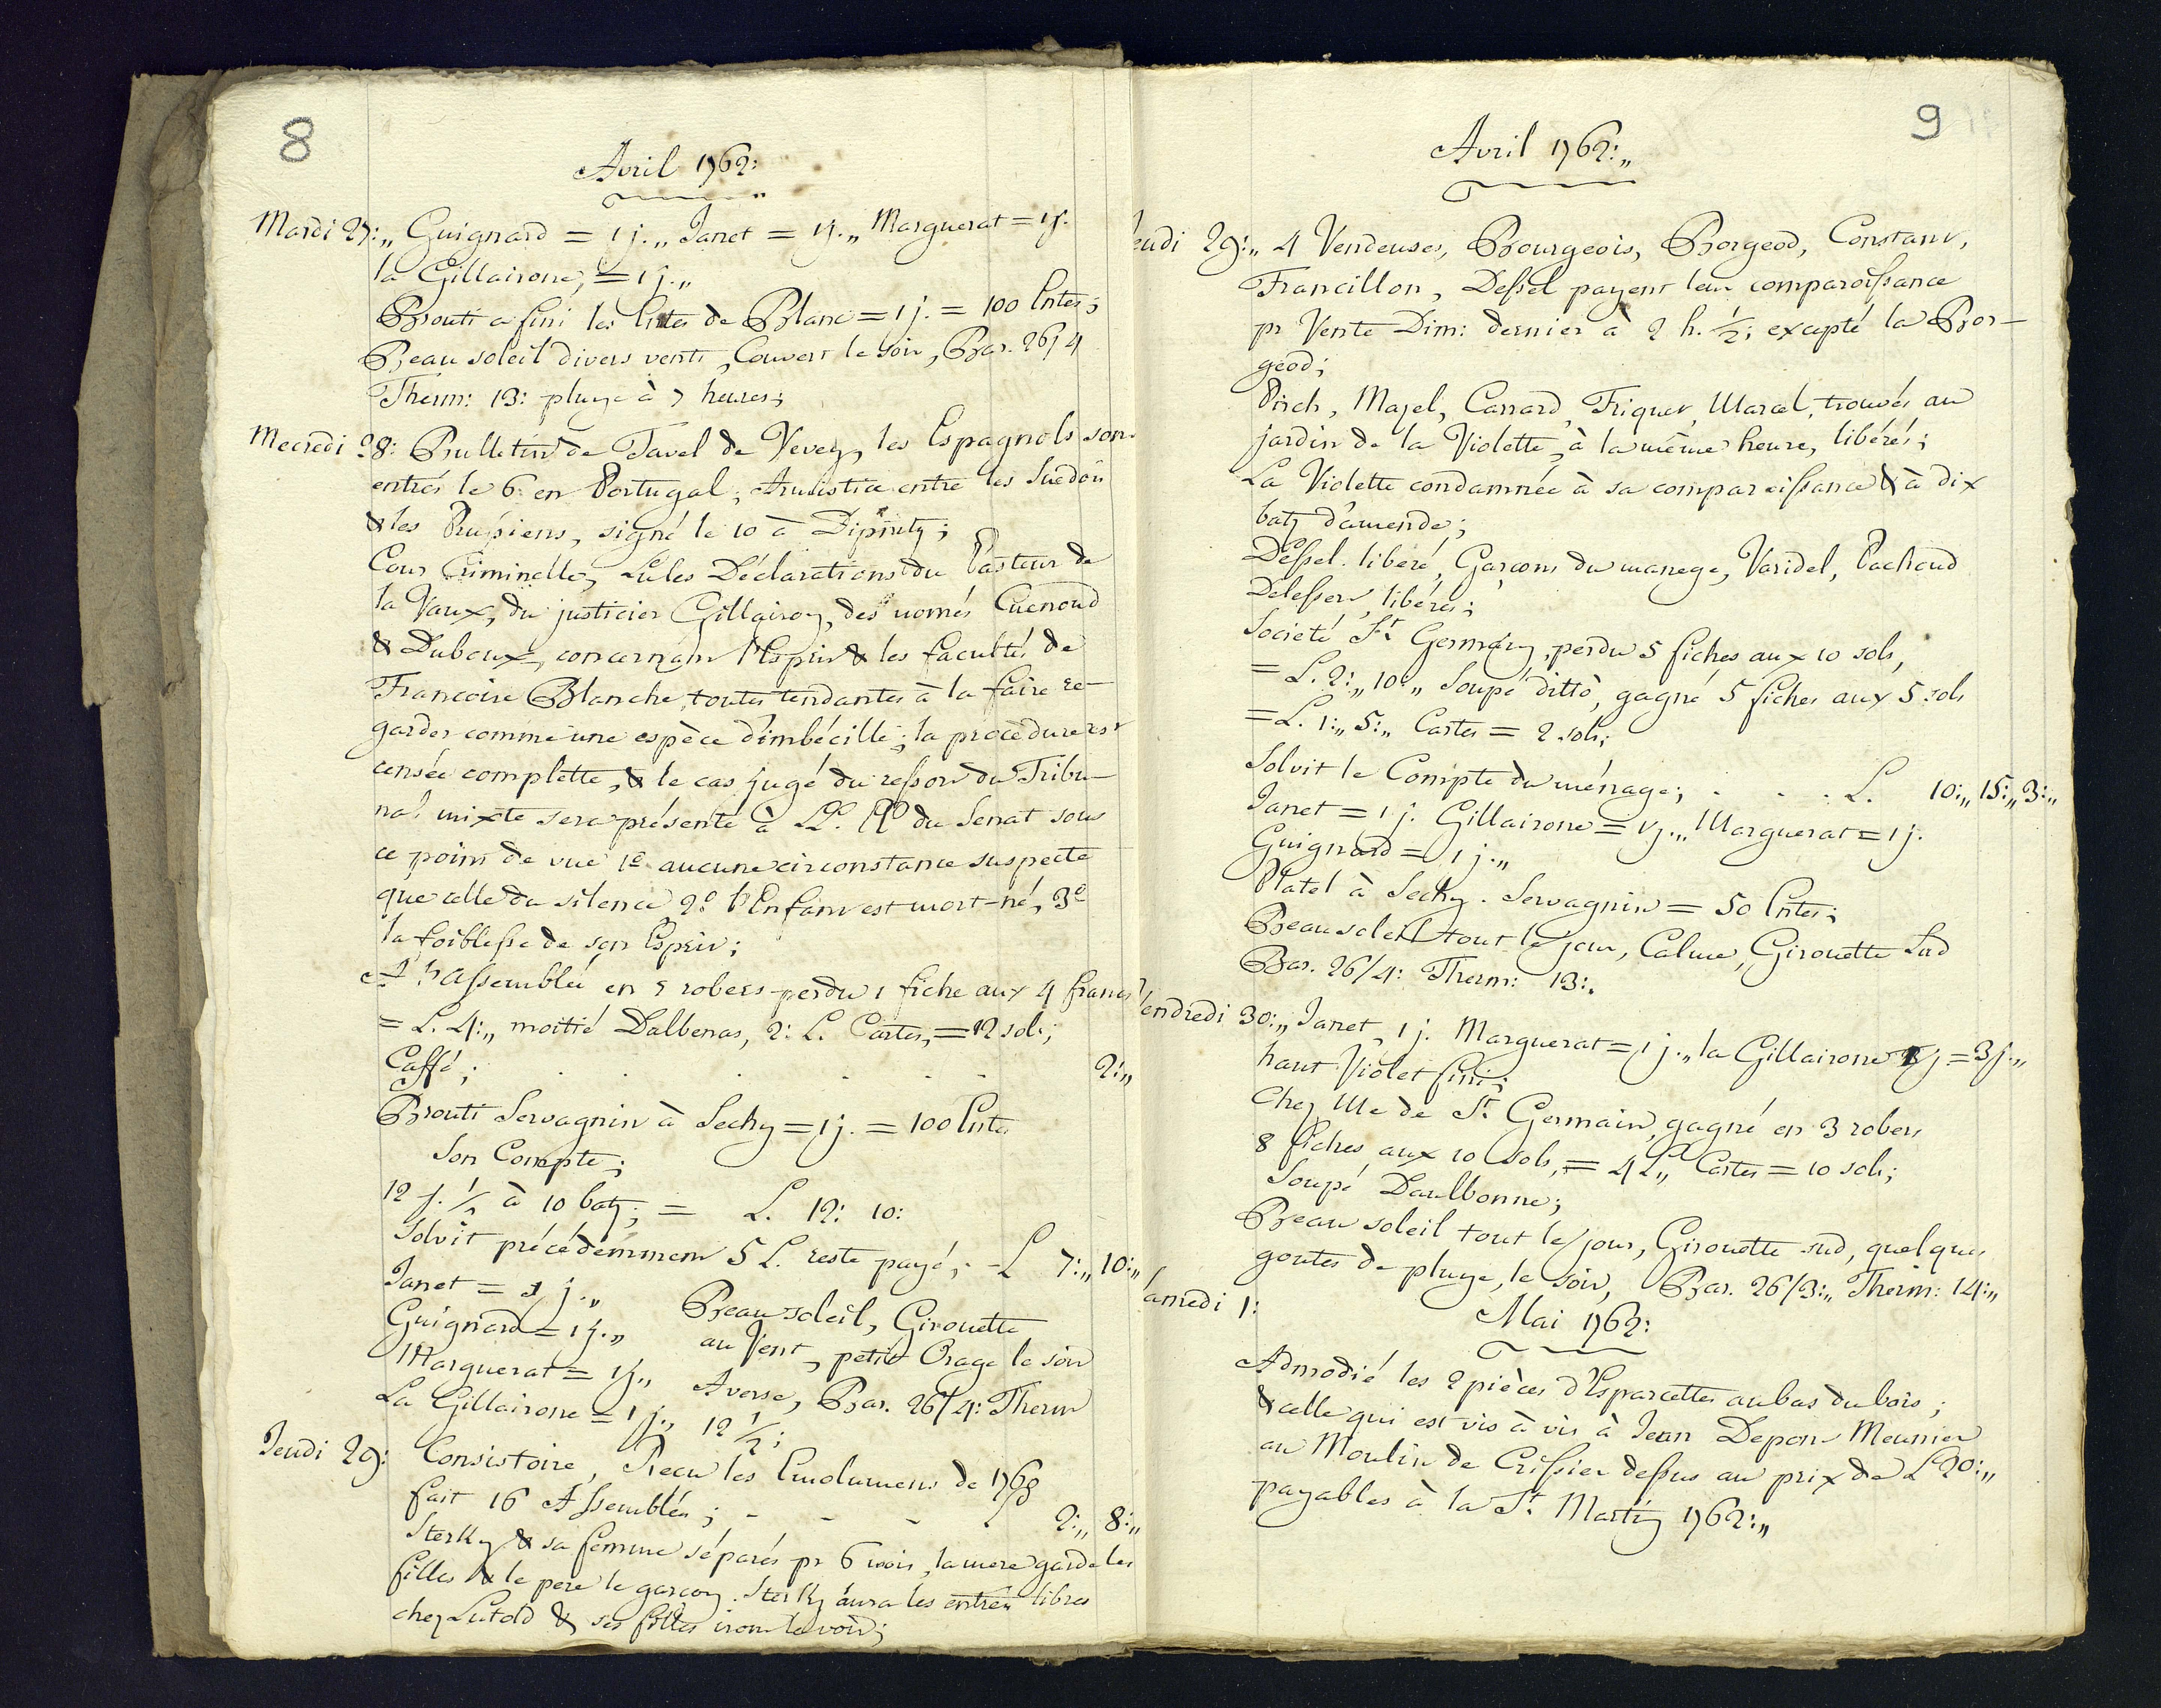 8
Avril 1762:
Mardi 27:„ Guignard = 1 j.„ Janet = 1j.„ Marguerat = 1j.
la Gillairone, = 1 j.„
Brouti a fini les Entes de Blanc = 1 j. = 100 Entes;
Beau soleil divers vents, Couvert le soir, Bar. 26/4
Therm: 13: pluye à 7 heures;
Mecredi 28: Bulletin de Tavel de Vevey, les Espagnols sont
entrés le 6 en Portugal; Armistice entre les Suedois
& les Prussiens, signé le 10 à
Cour Criminelle, Lu les Déclarations du Pasteur de
la Vaux, du justicier Gillairon, des només Cuenoud
& Duboux, concernant l'Esprit & les facultés de
Francoise Blanche, toutes tendantes à la faire re-
garder comme une espèce d'imbécille; la procedure est
censée complette, & le cas jugé du ressort du Tribu-
nal mixte sera présenté à LL. EE. du Senat sous
ce point de vue 1º aucune circonstance suspecte
que celle du silence 2º l'Enfant est mort-né, 3º
la foiblesse de son Esprit;
à l'Assemblée en 5 robers perdu 1 fiche aux 4 francs
= L. 4:„ moitié Dalbenas, 2: L. Cartes, = 12 sols;
Caffé; . . . . . . 2:„
Brouti Servagnin à Sechy = 1 j. = 100 Entes
Son Compte;
12 j. 1/2 à 10 batz; = L. 12: 10:
Solvit précédemment 5 L. reste payé; - L 7:„ 10:„
Janet = 1 j.„ Beau soleil, Girouette
Guignard = 1 j.„ au Vent, petit Orage le soir
Marguerat = 1j„ Averse, Bar. 26/4: Therm
La Gillairone = 1 j.„ 12 1/2;
Jeudi 29: Consistoire, Recu les Emolumens de
fait 16 Assemblées; - - - - 2:„ 8:„
Sterky & sa femme séparés pr 6 mois, la mere garde les
filles & le pere le garçon. Sterky aura les entrées libres
chez Lutold & ses filles iront le voir;
9
Avril 1762:„
Jeudi 29:„ 4 Vendeuses, Bourgeois, Borgeod, Constant,
Francillon, Dessel payent leur comparoissance
pr Vente Dim: dernier à 2 h. 1/2; excepté la Bor-
geod;
Pirch, Mazel, Carrard, Friquet, Marcel, trouvés au
jardin de la Violette, à la même heure, libérés;
La Violette condamnée à sa comparoissance & à dix
batz d'amende;
Dessel libéré, Garcons du manege, Varidel, Pachoud
Delessert, libérés;
Societé St. Germain, perdu 5 fiches aux 10 sols,
= L. 2:„ 10:„ Soupé dittò, gagné 5 fiches aux 5 sols
= L. 1:„ 5:„ Cartes = 2 sols;
Solvit le Compte du ménage; . . . L. 10:„ 15:„ 3:„
Janet = 1 j. Gillairone = 1j.„ Marguerat = 1 j.
Guignard = 1 j.„
Platel à Sechy. Servagnin = 50 Entes;
Beau soleil tout le jour, Calme, Girouette Sud
Bar. 26/4: Therm: 13:.
Vendredi 30:„ Janet, 1 j. Marguerat = 1 j.„ la Gillairone = 3j.„
haut Violet fini;
Chez Me de St. Germain, gagné en 3 robers
8 fiches aux 10 sols, = 4 L„ Cartes = 10 sols;
Soupé Daulbonne;
Beau soleil tout le jour, Girouette sud, quelques
goutes de pluye, le soir, Bar. 26/3:„ Therm: 14:„
Samedi 1:
Mai 1762:
Admodié les 2 pièces d'Esparcettes au bas du bois;
& celle qui est vis à vis à Jean Depont Meunier
au Moulin de Crissier dessus au prix de L 20:„
payables à la St. Martin 1762:„